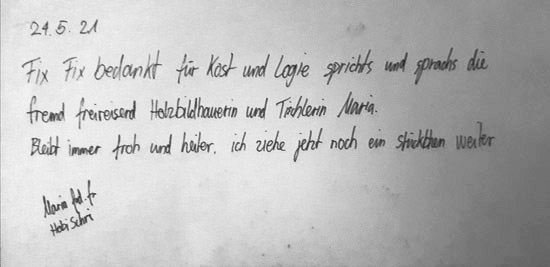 24.5.21
Fix Fix bedankt für Kost und Logie sprichts und sprachs die
fremd freireisend Holzbildhauerin und Tischlerin Maria.
Bleibt immer froh und heiter, ich ziehe jetzt noch ein stückchen weiter
Maria frd. fr
HobiSchri